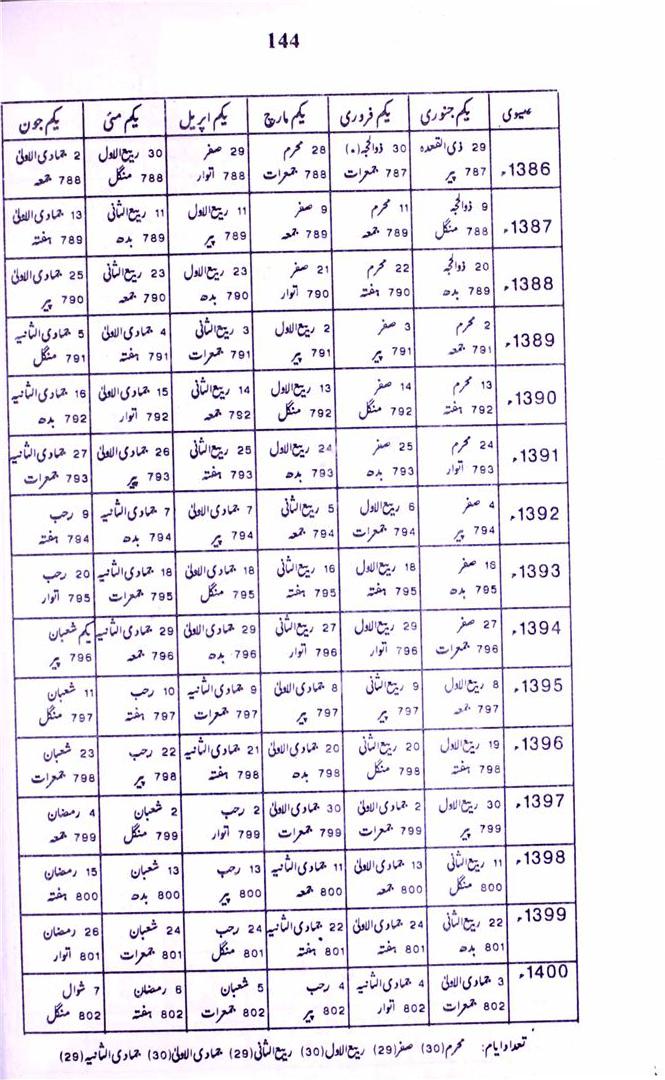 144
عیسوی یکم جنوری یکم فروری یکم مارچ یکم اپریل یکم مئی یکم جون
1386ء 29 ذی القعدہ 30 ذوالحجہ (۰) 28 محرم 29 صفر 30 ربیع الاول 2 جمادی الاولیٰ
787 پیر 787 جمعرات 788 جمعرات 788 اتوار 788 منگل 788 جمعہ
1387ء 9 ذوالحجہ 11 محرم 9 صفر 11 ربیع الاول 11 ربیع الثانی 13 جمادی الاولیٰ
788 منگل 789 جمعہ 789 جمعہ 789 پیر 789 بدھ 789 ہفتہ
1388ء 20 ذوالحجہ 22 محرم 21 صفر 23 ربیع الاول 23 ربیع الثانی 25 جمادی الاولیٰ
789 بدھ 790 ہفتہ 790 اتوار 790 بدھ 790 جمعہ 790 پیر
1389ء 2 محرم 3 صفر 2 ربیع الاول 3 ربیع الثانی 4 جمادی الاولیٰ 5 جمادی الثانیہ
791 جمعہ 791 پیر 791 پیر 791 جمعرات 791 ہفتہ 791 منگل
1390ء 13 محرم 14 صفر 13 ربیع الاول 14 ربیع الثانی 15 جمادی الاولیٰ 16 جمادی الثانیہ
792 ہفتہ 792 منگل 792 منگل 792 جمعہ 792 اتوار 792 بدھ
1391ء 24 محرم 25 صفر 24 ربیع الاول 25 ربیع الثانی 26 جمادی الاولیٰ 27 جمادی الثانیہ
793 اتوار 793 بدھ 793 بدھ 793 ہفتہ 793 پیر 793 جمعرات
1392ء 4 صفر 6 ربیع الاول 5 ربیع الثانی 7 جمادی الاولیٰ 7 جمادی الثانیہ 9 رجب
794 پیر 794 جمعرات 794 جمعہ 794 پیر 794 بدھ 794 ہفتہ
1393ء 16 صفر 18 ربیع الاول 16 ربیع الثانی 18 جمادی الاولیٰ 18 جمادی الثانیہ 20 رجب
795 بدھ 795 ہفتہ 795 ہفتہ 795 منگل 795 جمعرات 795 اتوار
1394ء 27 صفر 29 ربیع الاول 27 ربیع الثانی 29 جمادی الاولیٰ 29 جمادی الثانیہ یکم شعبان
796 جمعرات 796 اتوار 796 اتوار 796 بدھ 796 جمعہ 796 پیر
1395ء 8 ربیع الاول 9 ربیع الثانی 8 جمادی الاولیٰ 9 جمادی الثانیہ 10 رجب 11 شعبان
797 جمعہ 797 پیر 797 پیر 797 جمعرات 797 ہفتہ 797 منگل
1396ء 19 ربیع الاول 20 ربیع الثانی 20 جمادی الاولیٰ 21 جمادی الثانیہ 22 رجب 23 شعبان
798 ہفتہ 798 منگل 798 بدھ 798 ہفتہ 798 پیر 798 جمعرات
1397ء 30 ربیع الاول 2 جمادی الاولیٰ 30 جمادی الاولیٰ 2 رجب 2 شعبان 4 رمضان
799 پیر 799 جمعرات 799 جمعرات 799 اتوار 799 منگل 799 جمعہ
1398ء 11 ربیع الثانی 13 جمادی الاولیٰ 11 جمادی الثانیہ 13 رجب 13 شعبان 15 رمضان
800 منگل 800 جمعہ 800 جمعہ 800 پیر 800 بدھ 800 ہفتہ
1399ء 22 ربیع الثانی 24 جمادی الاولیٰ 22 جمادی الثانیہ 24 رجب 24 شعبان 26 رمضان
801 بدھ 801 ہفتہ 801 ہفتہ 801 منگل 801 جمعرات 801 اتوار
1400ء 3 جمادی الاولیٰ 4 جمادی الثانیہ 4 رجب 5 شعبان 6 رمضان 7 شوال
802 جمعرات 802 اتوار 802 پیر 802 جمعرات 802 ہفتہ 802 منگل
تعداد ایام: محرم (30) صفر (29) ربیع الاول (30) ربیع الثانی (29) جمادی الاولیٰ (30) جمادی الثانیہ (29)